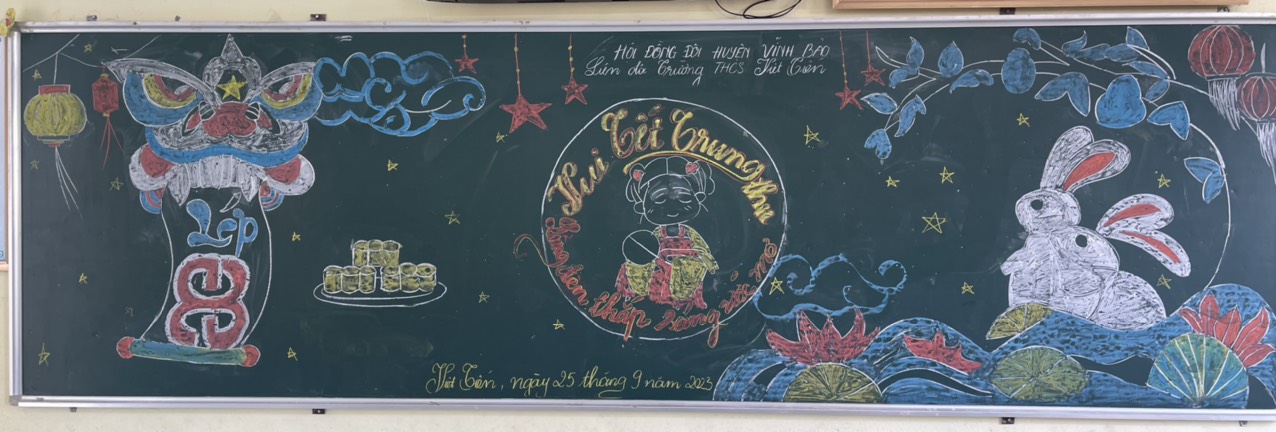 HỘI ĐỒNG ĐỘI HUYỆN VĨNH BẢO
Liên đội Trường THCS Việt Tiến
Vui Tết Trung thu
Lồng đèn thắp sáng ước mơ
Lớp
8B
Việt Tiến, ngày 25 tháng 9 năm 2023